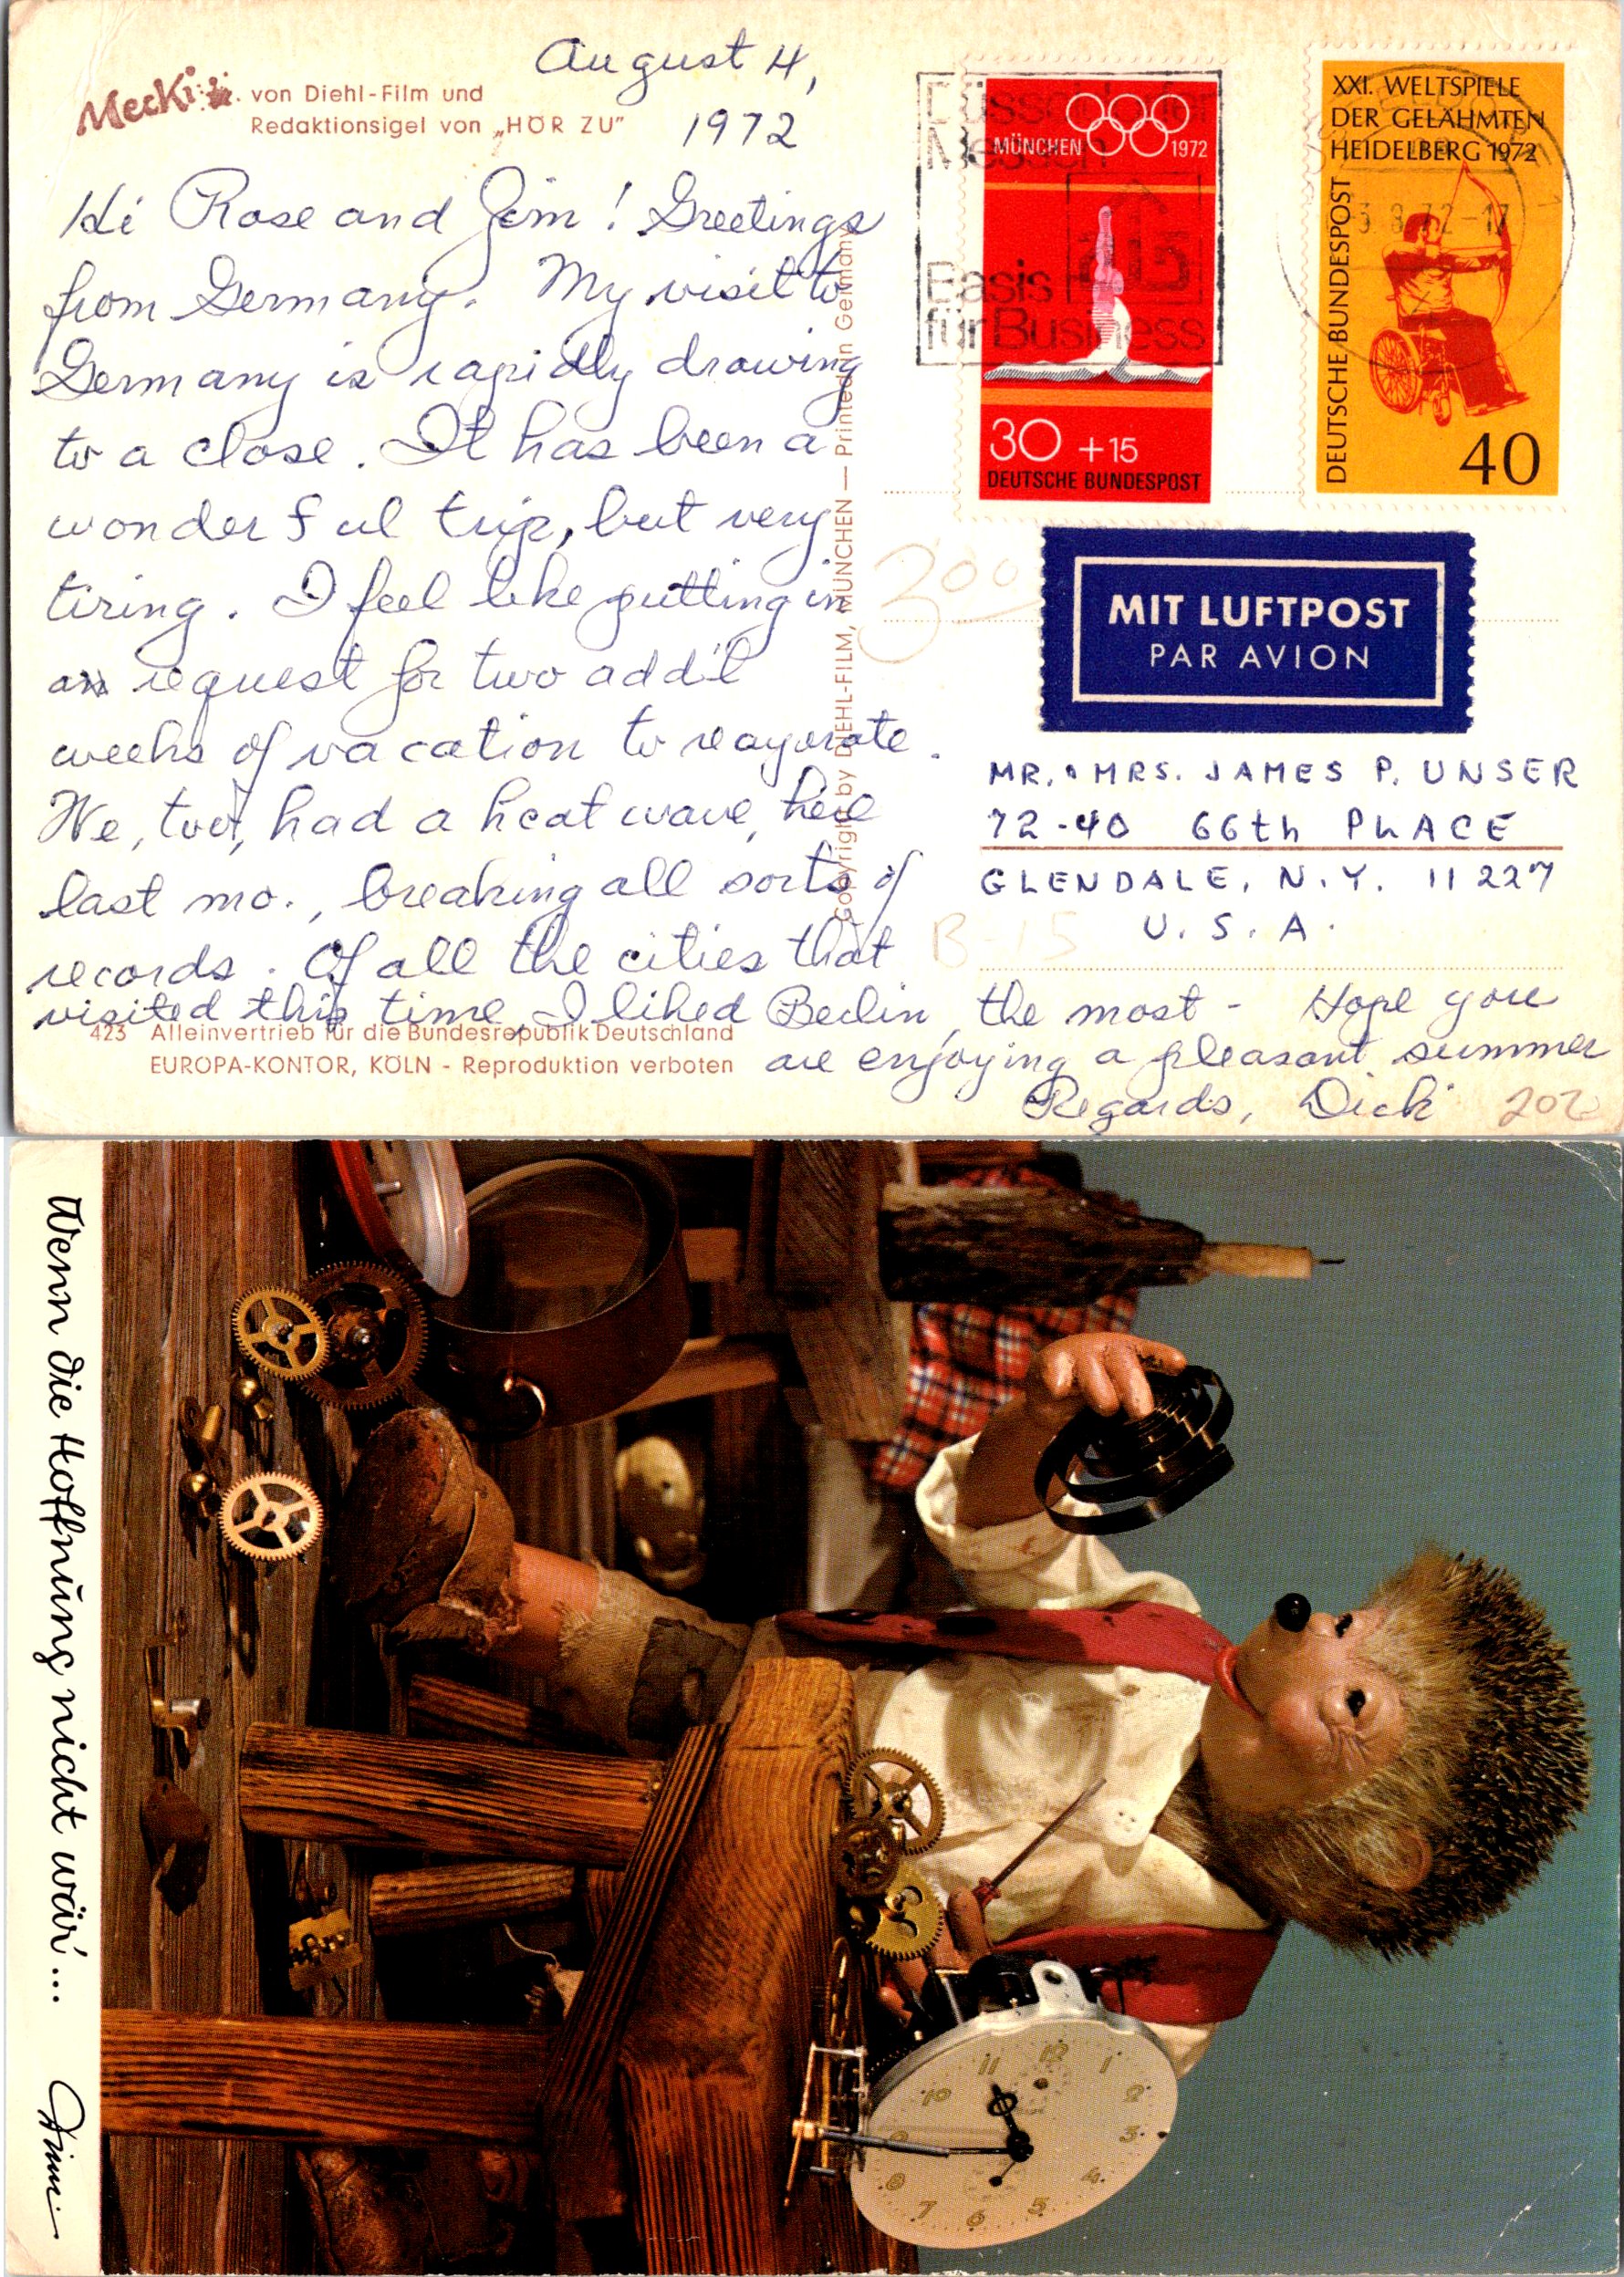 August 4,
1972
Mecki
von Diehl-Film und
Redaktionsigel von „HÖR ZU”
Hi Rose and Jim! Greetings
from Germany. My visit to
Germany is rapidly drawing
to a close. It has been a
wonderful trip, but very
tiring. I feel like putting in
a request for two add'l
weeks of vacation to
We, too, had a heat wave, here
last mo., breaking all sorts of
records. Of all the cities that
visited this time, I liked Berlin, the most - Hope you
are enjoying a pleasant summer
Regards, Dick
423 Alleinvertrieb für die Bundesrepublik Deutschland
EUROPA-KONTOR, KÖLN - Reproduktion verboten
Copyright by DIEHL-FILM, MÜNCHEN — Printed in Germany
Düsseldorfer
Messen
Basis
für Business
MÜNCHEN 1972
30 +15
DEUTSCHE BUNDESPOST
XXI. WELTSPIELE
DER GELÄHMTEN
HEIDELBERG 1972
DEUTSCHE BUNDESPOST
40
3.8.72-17
300
MIT LUFTPOST
PAR AVION
MR. & MRS. JAMES P. UNSER
72-40 66th PLACE
GLENDALE, N.Y. 11227
U.S.A.
B-15
202
Wenn die Hoffnung nicht wär'...
11 12 1
10 2
3
8 4
7 6 5